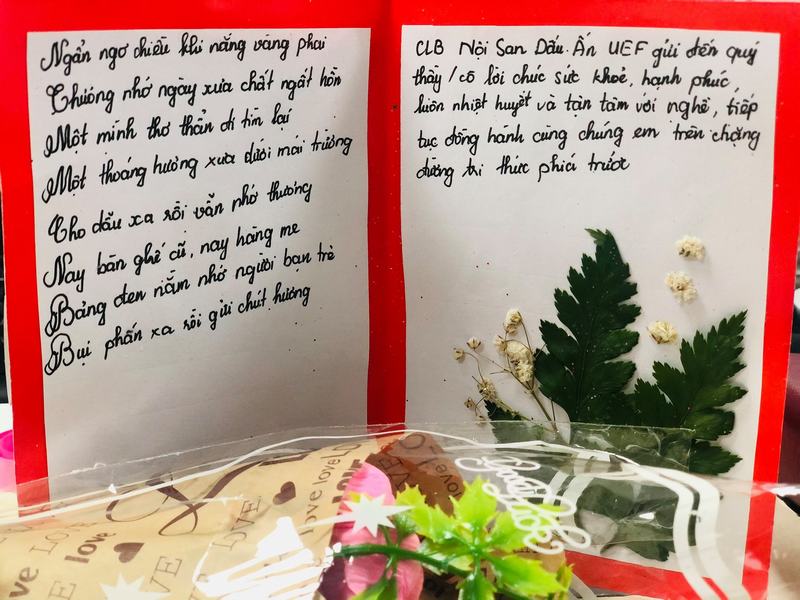 Ngẩn ngơ chiều khi nắng vàng phai
Thương nhớ ngày xưa chất ngất hồn
Một mình thơ thẩn đi tìm lại
Một thoáng hương xưa dưới mái trường
Cho dẫu xa rồi vẫn nhớ thương
Này bàn ghế cũ, này hàng me
Bảng đen nằm nhớ người bạn trẻ
Bụi phấn xa rồi gửi chút hương
CLB Nội San Dấu Ấn UEF gửi đến quý
thầy/cô lời chúc sức khoẻ, hạnh phúc,
luôn nhiệt huyết và tận tâm với nghề, tiếp
tục đồng hành cùng chúng em trên chặng
đường tri thức phía trước
love
LOVE
love
LOVE
love
LOVE
love